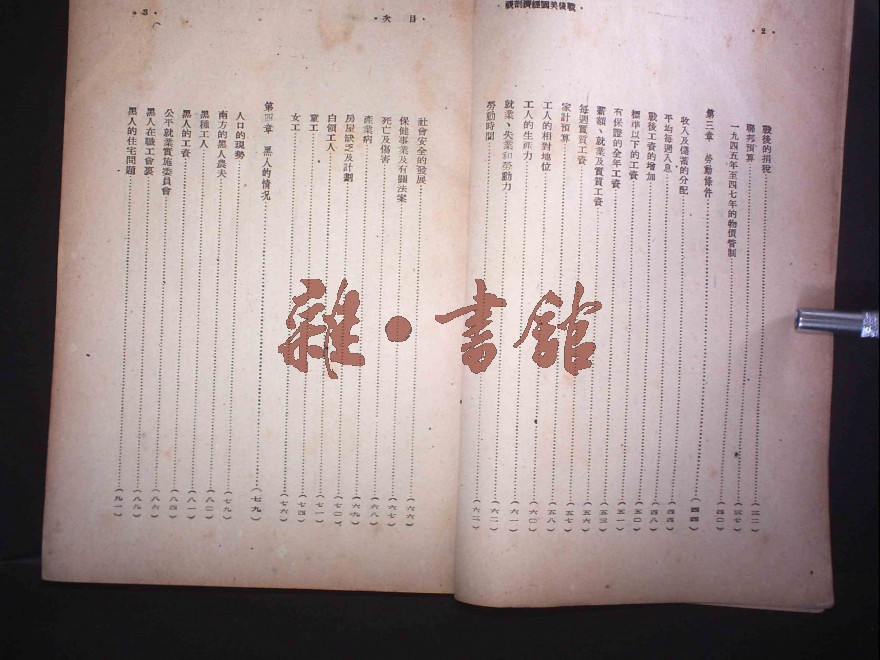 ·戰後美國經濟剖視·
·2·
戰後的捐稅……(三二)
聯邦預算……(三七)
一九四五年至四七年的物價管制……(四〇)
第三章 勞動條件……(四四)
收入及儲蓄的分配……(四四)
平均每週入息……(四八)
戰後工資的增加……(五〇)
標準以下的工資……(五一)
有保證的全年工資……(五三)
薪額、就業及實質工資……(五六)
每週實質工資……(五七)
家計預算……(五八)
工人的相對地位……(六〇)
工人的生產力……(六一)
就業、失業和勞動力……(六二)
勞動時間
·目次·
·3·
社會安全的發展……(六六)
保健事業及有關法案……(六七)
死亡及傷害……(六八)
產業病……(六九)
房屋缺乏及計劃……(七〇)
白領工人……(七一)
童工……(七四)
女工……(七六)
第四章 黑人的情況……(七九)
人口的現勢……(七九)
南方的黑人農夫……(八〇)
黑種工人……(八一)
黑人的工資
公平就業實施委員會
黑人在職工會裏
黑人的住宅問題……(九一)
雜·書館